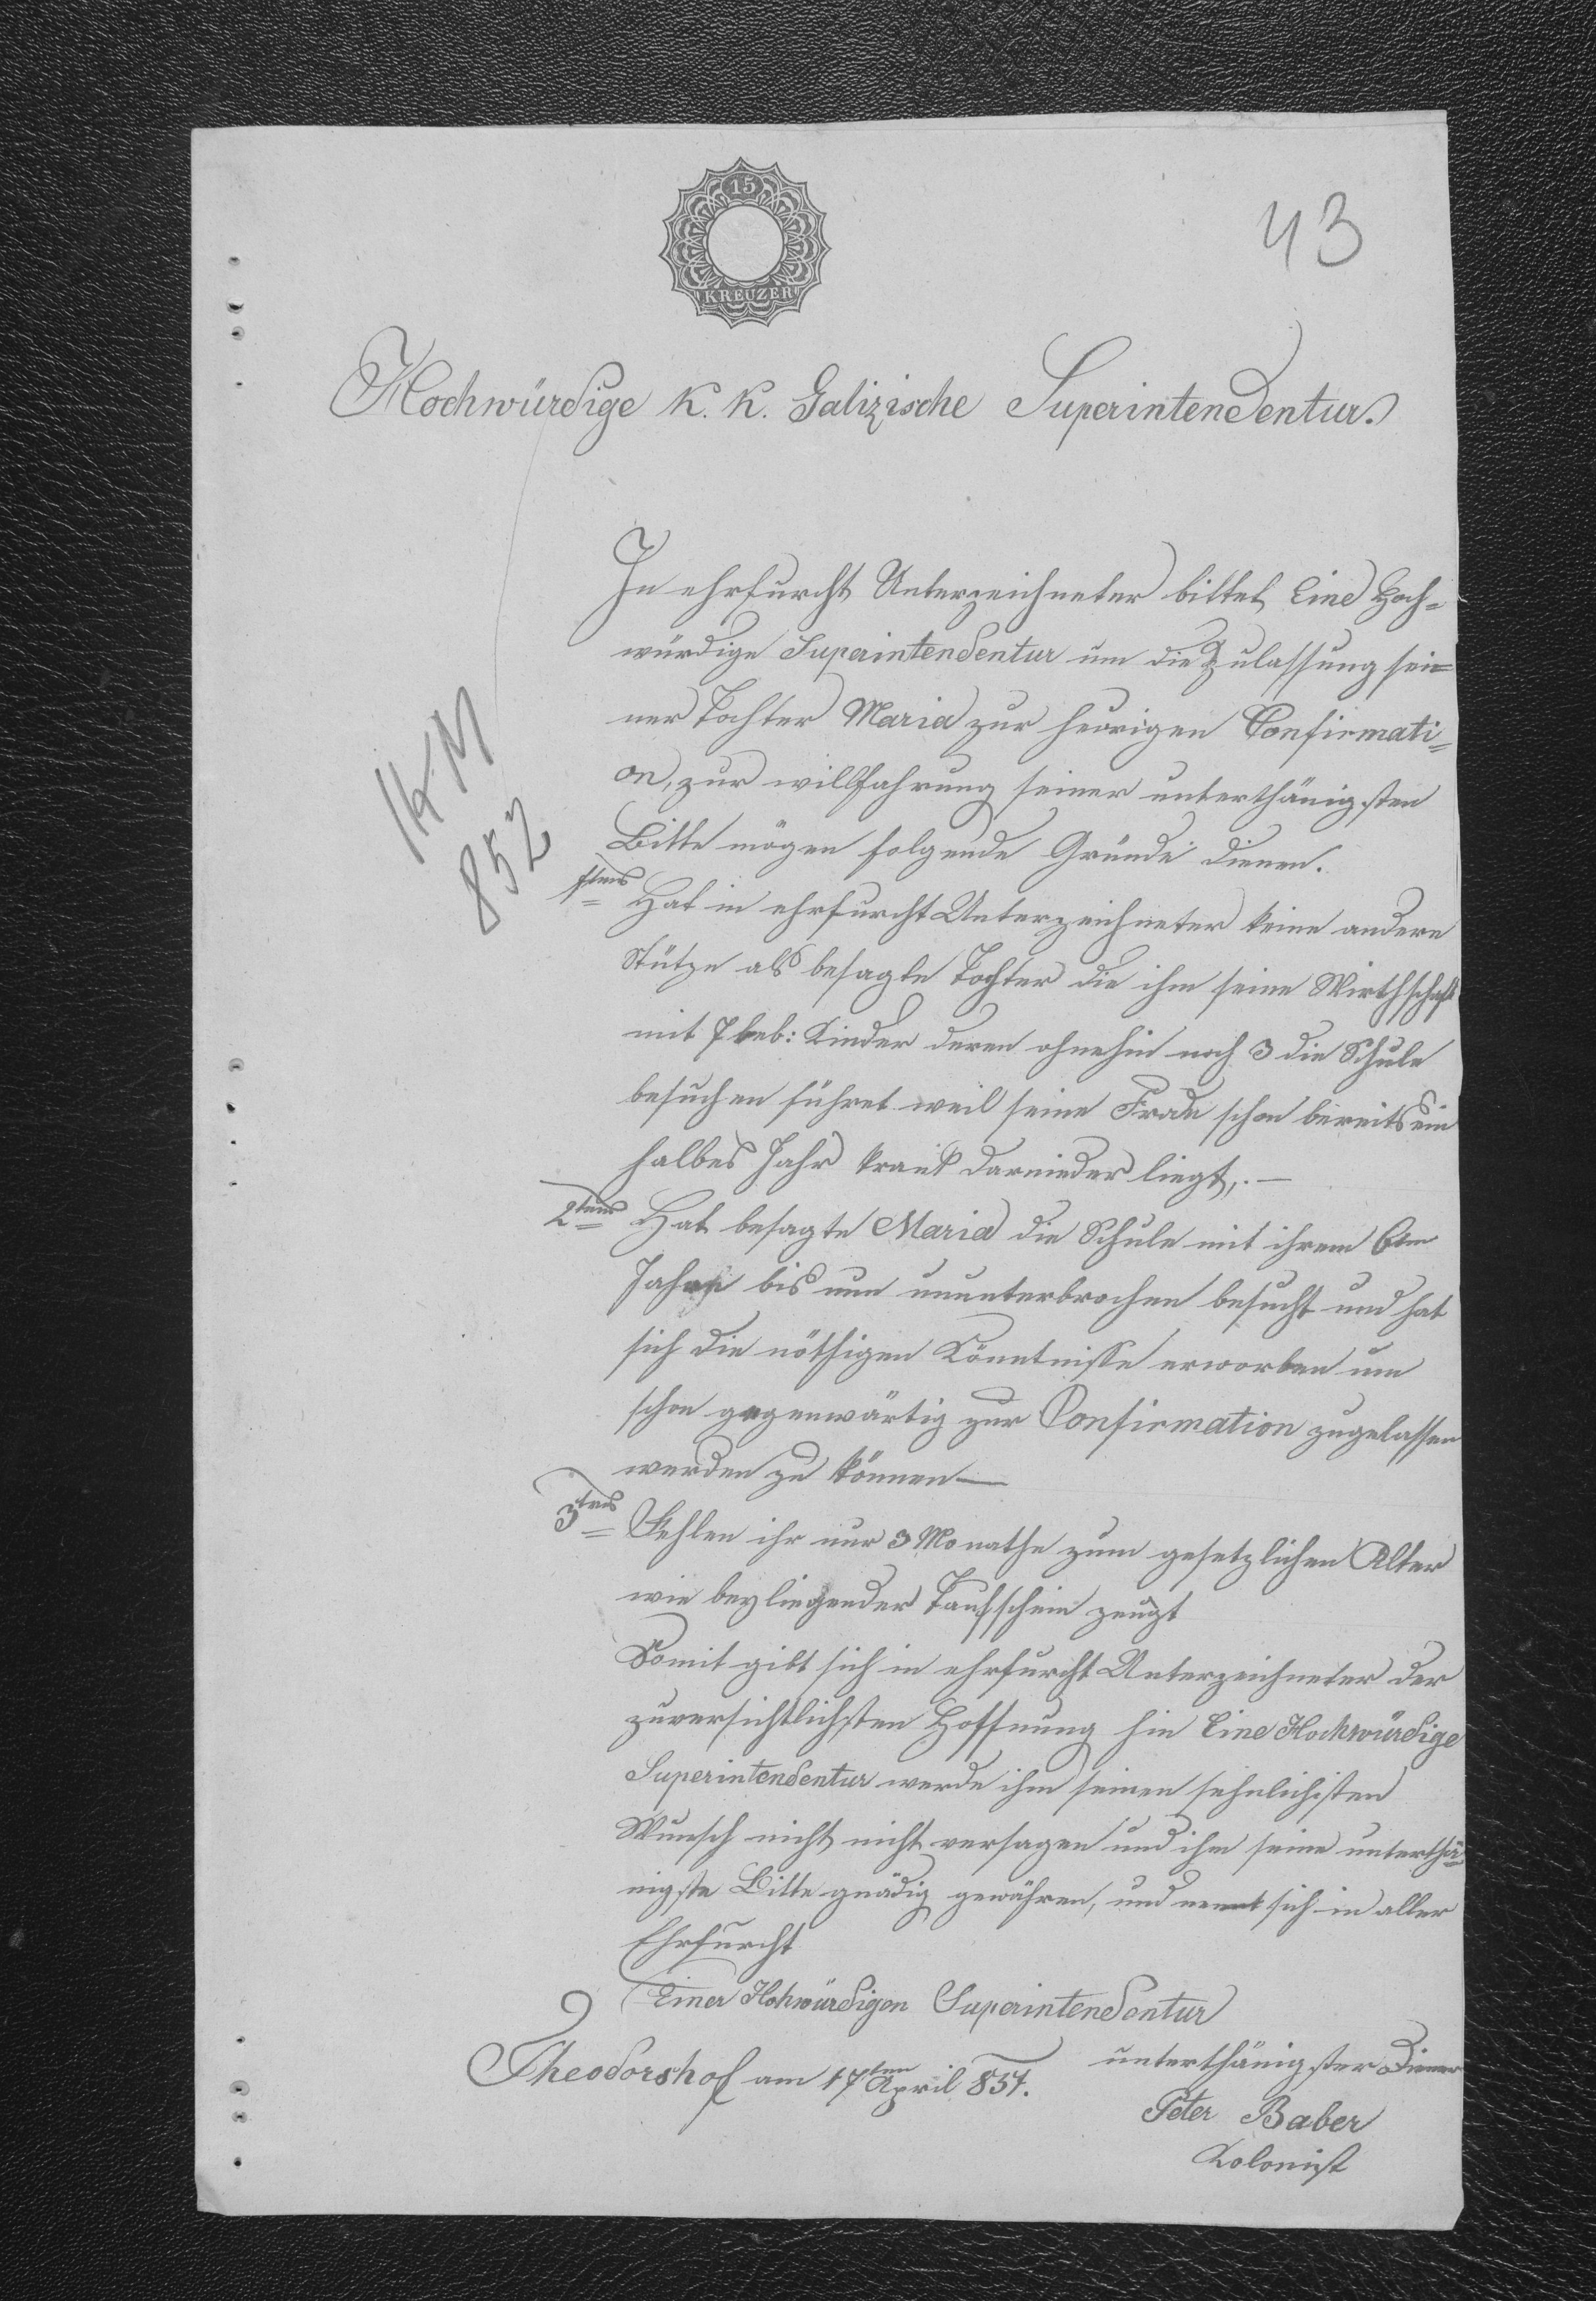 15
KREUZER
43
Hochwürdige K. K. Galizische Superintendentur.
In ehrfurcht Unterzeichneter bittet Eine Hoch=
würdige Superintendentur um die Zulassung sei=
ner Tochter Maria zur heurigen Confirmati=
on, zur willfahrung seiner unterthänigsten
Bitte mögen folgende Gründe dienen.
852
1tens Hat in ehrfurcht Unterzeichneter keine andere
Stütze als besagte Tochter die ihm seine Wirthschaft
mit 7 leb: Kinder deren ohnehin noch 3 die Schule
besuchen führet weil seine Frau schon bereits ein
halbes Jahr krank darnieder liegt,. —
2tens Hat besagte Maria die Schule mit ihrem 6ten
Jahre bis nun ununterbrochen besucht und hat
sich die nöthigen Könntnisse erworben um
schon gegenwärtig zur Confirmation zugelassen
werden zu können —
3tens Fehlen ihr nur 3 Monathe zum gesetzlichen Alter
wie beyliegender Taufschein zeugt
Somit gibt sich in ehrfurcht Unterzeichneter der
zuversichtlichsten Hoffnung hin Eine Hochwürdige
Superintendentur werde ihm seinen sehnlichsten
Wunsch nicht nicht versagen und ihm seine unterthä=
nigste Bitte gnädig gewähren, und nennt sich in aller
Ehrfurcht
Einer Hohwürdigen Superintendentur
unterthänigster Diener
Theodorshof am 17ten April 851.
Peter Baber
Kolonist